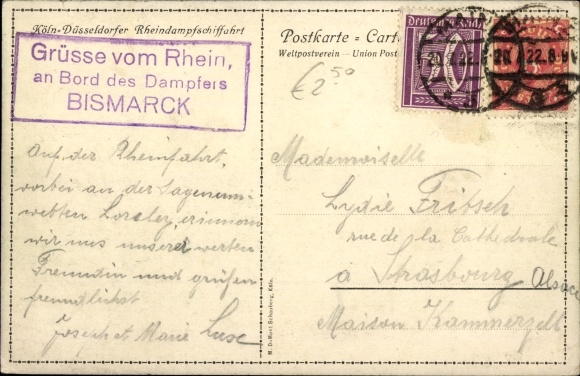 Köln-Düsseldorfer Rheindampfschiffahrt
Grüsse vom Rhein,
an Bord des Dampfers
BISMARCK
Auf der Rheinfahrt,
vorbei an der Sagenum-
webten Loreley, erinnern
wir uns unserer werten
Freundin und grüßen
freundlichst
Joseph et Marie
Postkarte - Carte
Weltpostverein - Union Post
Deutsches Reich
50
€2,50
Mademoiselle
Lydie Fritsch
rue de la Cathedrale
à Strasbourg Alsace
Maison Kammerzell